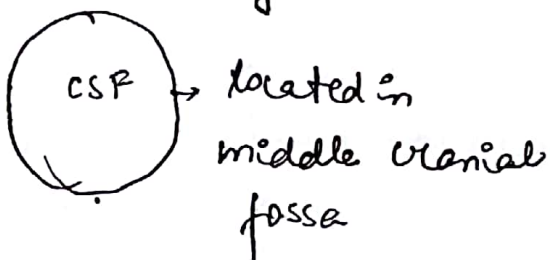 CSF → located in
middle cranial
fossa